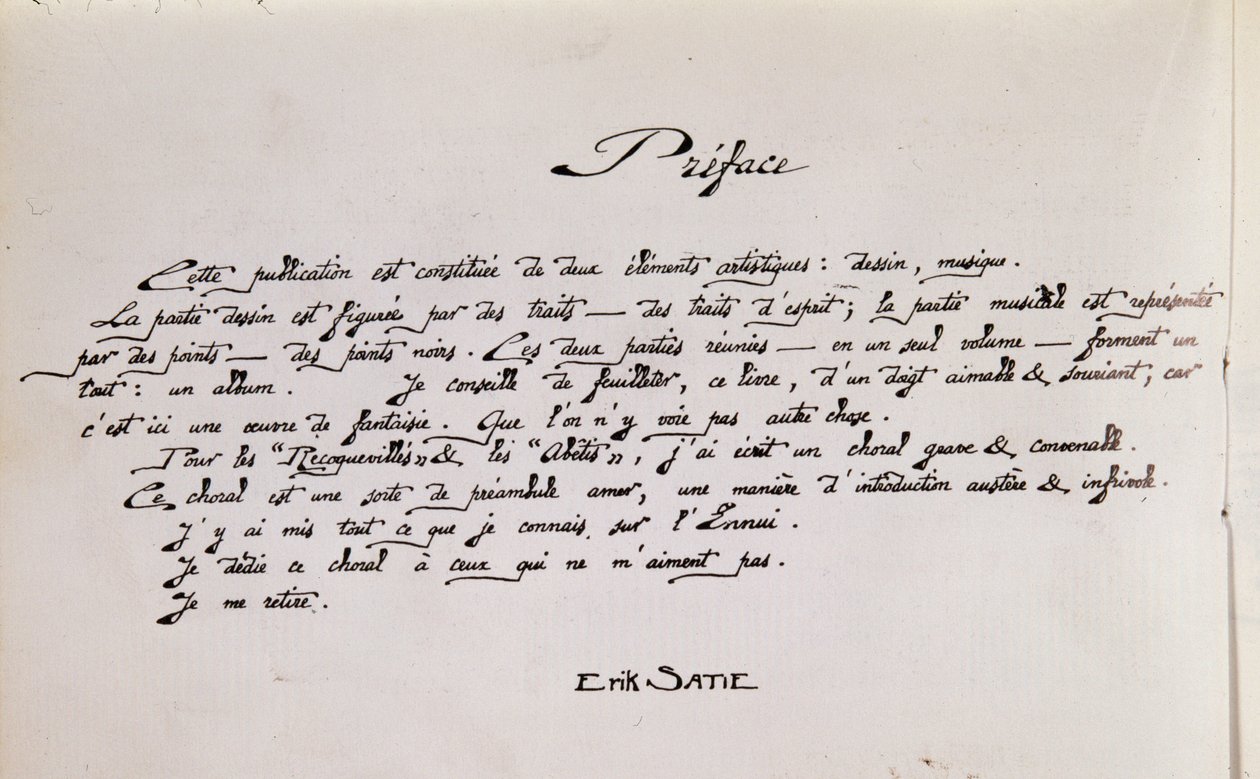 Préface
Cette publication est constituée de deux éléments artistiques : dessin, musique.
La partie dessin est figurée par des traits — des traits d'esprit ; la partie musicale est représentée
par des points — des points noirs. Ces deux parties réunies — en un seul volume — forment un
tout : un album. Je conseille de feuilleter, ce livre, d'un doigt aimable & souriant, car
c'est ici une œuvre de fantaisie. Que l'on n'y voie pas autre chose.
Pour les "Recoquevillés" & les "Abêtis", j'ai écrit un choral grave & convenable.
Ce choral est une sorte de préambule amer, une manière d'introduction austère & infrivole.
J'y ai mis tout ce que je connais sur l'Ennui.
Je dédie ce choral à ceux qui ne m'aiment pas.
Je me retire.
Erik SATIE